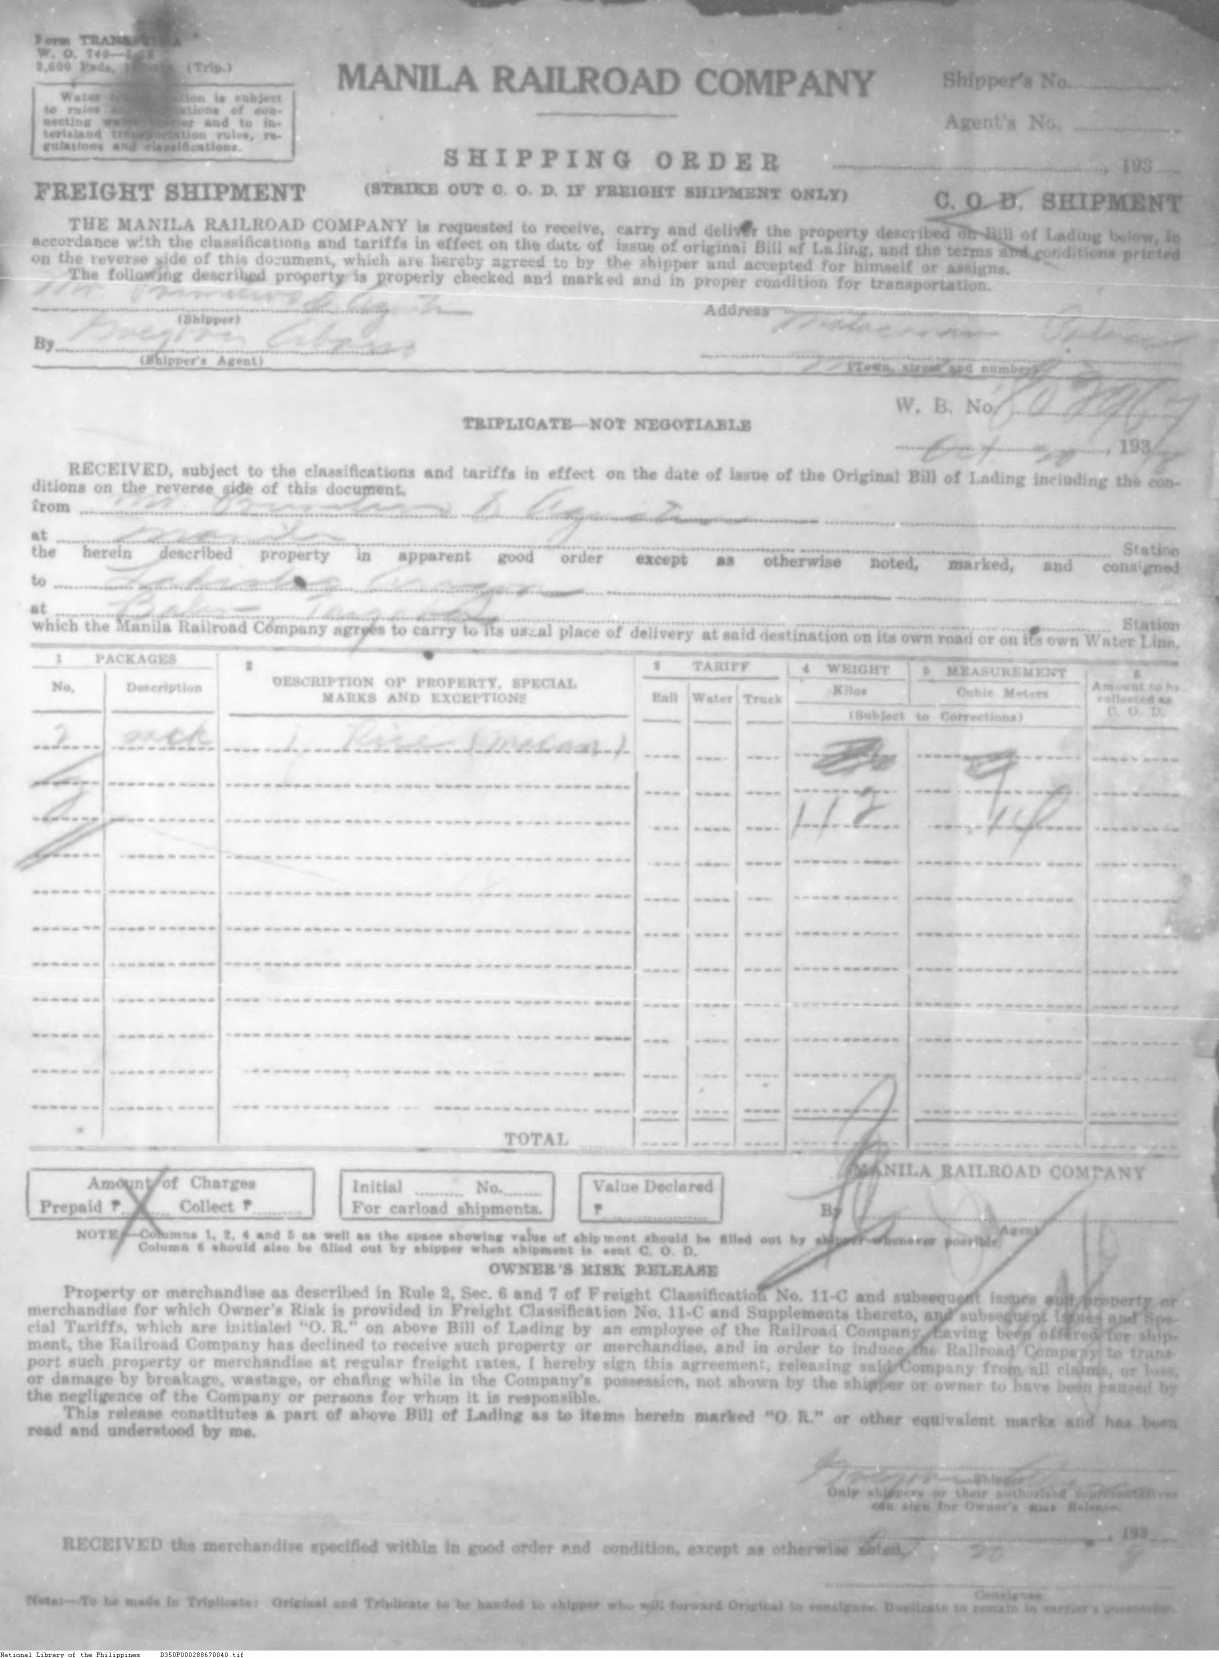 Form
W. O. 740
2,000 Pads, (Trip.)
Water is subject
to rules of con-
necting and to in-
terisland transportation rules, re-
gulations and classifications.
MANILA RAILROAD COMPANY
Shipper's No.
Agent's No.
SHIPPING ORDER
, 193
FREIGHT SHIPMENT
(STRIKE OUT C. O. D. IF FREIGHT SHIPMENT ONLY)
C. O. D. SHIPMENT
THE MANILA RAILROAD COMPANY is requested to receive, carry and deliver the property described on Bill of Lading below, in
accordance with the classifications and tariffs in effect on the date of issue of original Bill of Lading, and the terms and conditions printed
on the reverse side of this document, which are hereby agreed to by the shipper and accepted for himself or assigns.
The following described property is properly checked and marked and in proper condition for transportation.
(Shipper)
Address
By
(Shipper's Agent)
(Town, street and number)
W. B. No.
TRIPLICATE—NOT NEGOTIABLE
Oct 20, 1938
RECEIVED, subject to the classifications and tariffs in effect on the date of issue of the Original Bill of Lading including the con-
ditions on the reverse side of this document.
from
at Manila Station
the herein described property in apparent good order except as otherwise noted, marked, and consigned
to
at Station
which the Manila Railroad Company agrees to carry to its usual place of delivery at said destination on its own road or on its own Water Line.
1 PACKAGES
No.
Description
2
DESCRIPTION OF PROPERTY, SPECIAL
MARKS AND EXCEPTIONS
3 TARIFF
Rail
Water
Truck
4 WEIGHT
Kilos
5 MEASUREMENT
Cubic Meters
(Subject to Corrections)
6
Amount to be
collected as
C. O. D.
2 sack Rice (macan)
112 .14
TOTAL
Amount of Charges
Prepaid ₱ Collect ₱
Initial No.
For carload shipments.
Value Declared
₱
MANILA RAILROAD COMPANY
By
Agent
NOTE—Columns 1, 2, 4 and 5 as well as the space showing value of shipment should be filled out by shipper whenever possible.
Column 6 should also be filled out by shipper when shipment is sent C. O. D.
OWNER'S RISK RELEASE
Property or merchandise as described in Rule 2, Sec. 6 and 7 of Freight Classification No. 11-C and subsequent issues and property or
merchandise for which Owner's Risk is provided in Freight Classification No. 11-C and Supplements thereto, and subsequent issues and Spe-
cial Tariffs, which are initialed "O. R." on above Bill of Lading by an employee of the Railroad Company, having been offered for ship-
ment, the Railroad Company has declined to receive such property or merchandise, and in order to induce the Railroad Company to trans-
port such property or merchandise at regular freight rates, I hereby sign this agreement, releasing said Company from all claims, or loss,
or damage by breakage, wastage, or chafing while in the Company's possession, not shown by the shipper or owner to have been caused by
the negligence of the Company or persons for whom it is responsible.
This release constitutes a part of above Bill of Lading as to items herein marked "O. R." or other equivalent marks and has been
read and understood by me.
Shipper
Only shippers or their authorized representatives
can sign for Owner's Risk Release.
, 193
RECEIVED the merchandise specified within in good order and condition, except as otherwise noted.
20 8
Consignee
Note:—To be made in Triplicate: Original and Triplicate to be handed to shipper who will forward Original to consignee. Duplicate to remain in carrier's possession.
National Library of the Philippines D350P000288670040.tif